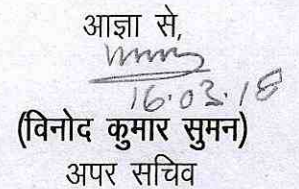 आज्ञा से,
16.03.18
(विनोद कुमार सुमन)
अपर सचिव